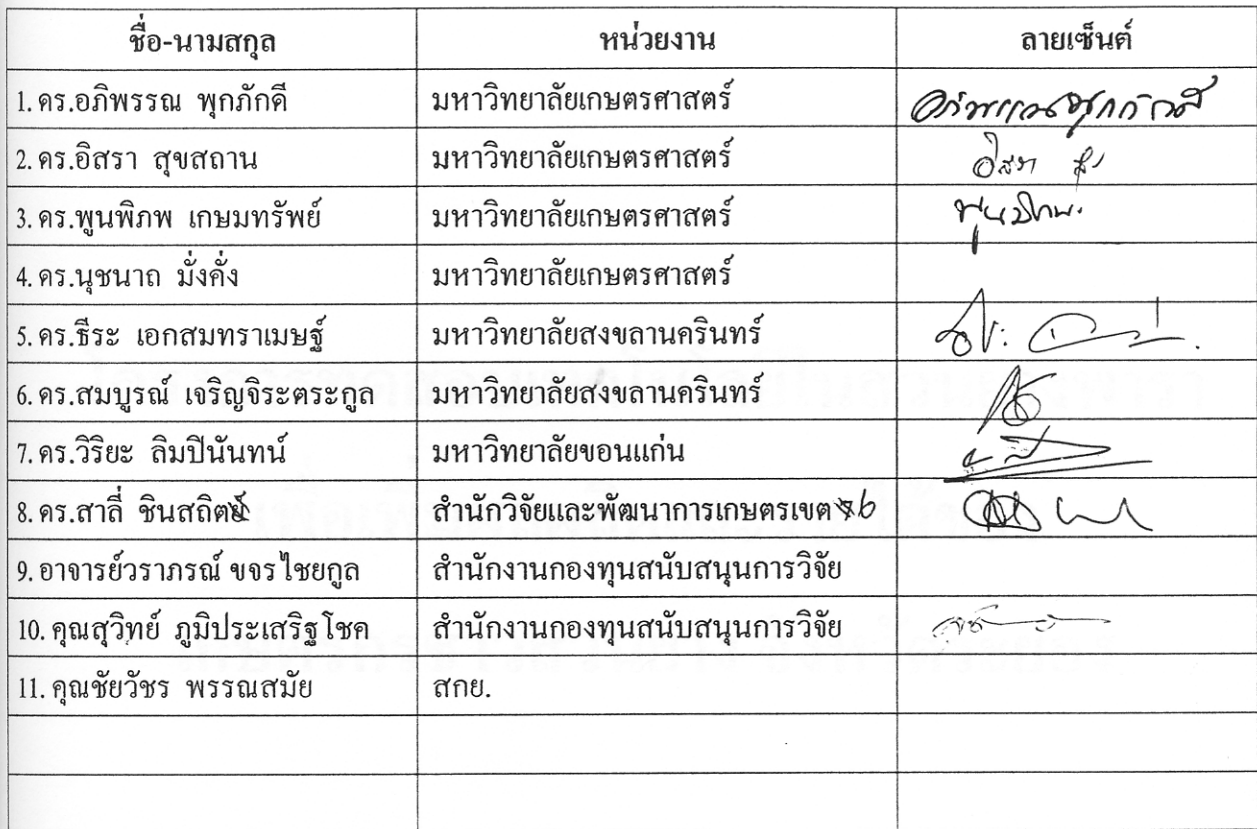 ชื่อ-นามสกุล หน่วยงาน ลายเซ็นต์
1. ดร.อภิพรรณ พุกภักดี มหาวิทยาลัยเกษตรศาสตร์ อภิพรรณ พุกภักดี
2. ดร.อิสรา สุขสถาน มหาวิทยาลัยเกษตรศาสตร์ อิสรา สุข
3. ดร.พูนพิภพ เกษมทรัพย์ มหาวิทยาลัยเกษตรศาสตร์ พูนพิภพ
4. ดร.นุชนาถ มั่งคั่ง มหาวิทยาลัยเกษตรศาสตร์
5. ดร.ธีระ เอกสมทราเมษฐ์ มหาวิทยาลัยสงขลานครินทร์
6. ดร.สมบูรณ์ เจริญจิระตระกูล มหาวิทยาลัยสงขลานครินทร์
7. ดร.วิริยะ ลิมปินันทน์ มหาวิทยาลัยขอนแก่น
8. ดร.สาลี่ ชินสถิตย์ สำนักวิจัยและพัฒนาการเกษตรเขต 6
9. อาจารย์วราภรณ์ ขจรไชยกูล สำนักงานกองทุนสนับสนุนการวิจัย
10. คุณสุวิทย์ ภูมิประเสริฐโชค สำนักงานกองทุนสนับสนุนการวิจัย
11. คุณชัยวัชร พรรณสมัย สกย.